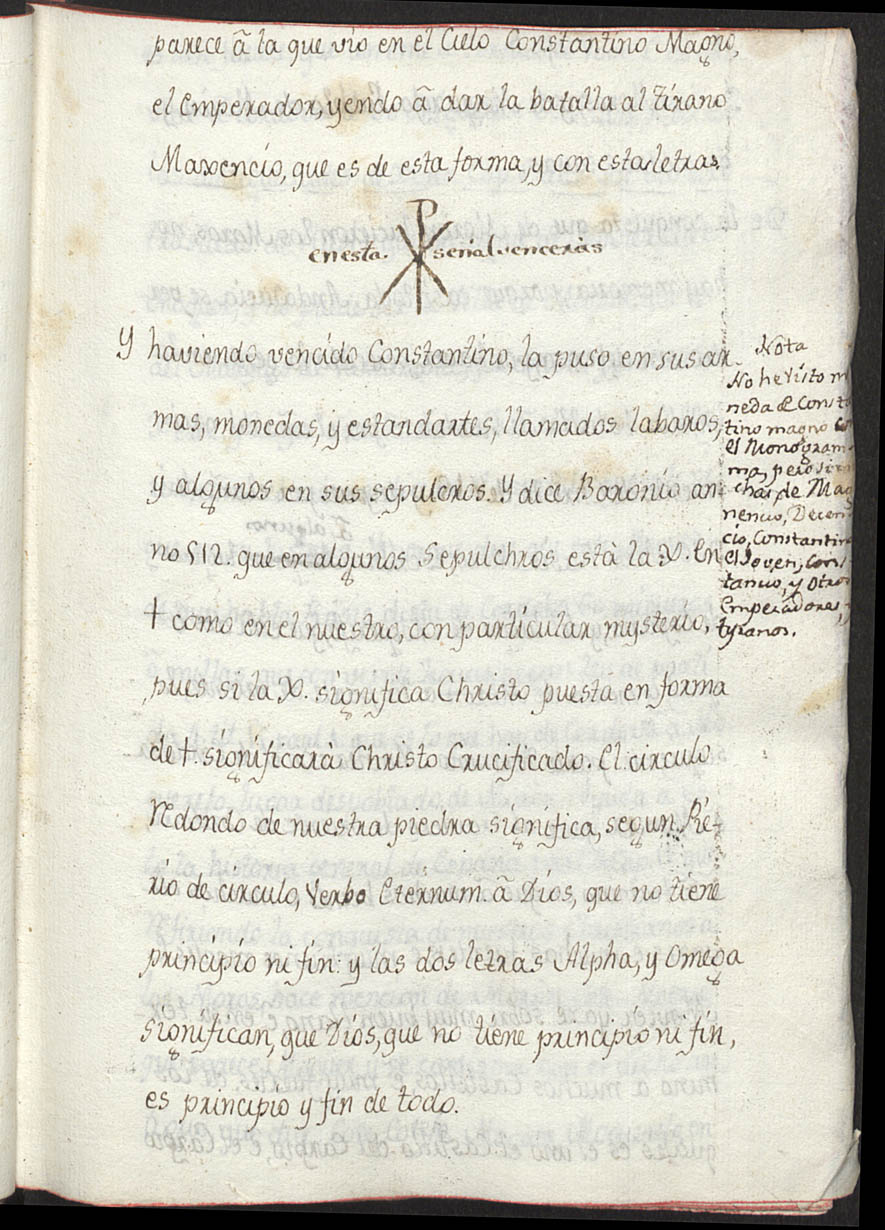 parece ã la que vio en el Cielo Constantino Magno,
el Emperador, yendo ã dar la batalla al tirano
Maxencio, que es de esta forma, y con estas letras
en esta. ☧ señal venceràs
Y haviendo vencido Constantino, la puso en sus ar-
mas, monedas, y estandartes, llamados labaros,
y algunos en sus sepulcros. Y dice Baronio an
no 512. que en algunos Sepulchros està la X. En
† como en el nuestro, con particular mysterio,
pues si la X. significa Christo puesta en forma
de †. significarà Christo Crucificado. El circulo
Redondo de nuestra piedra significa, segun Pie-
rio de circulo, Verbo Eternum. ã Dios, que no tiene
principio ni fin: y las dos letras Alpha, y Omega
significan, que Dios, que no tiene principio ni fin,
es principio y fin de todo.
Nota
No he visto m
neda de Const
tino magno
el Monogram
ma, pero
chas de Mag
nencio, Decen
cio, Constantin
el Joven, Cons
tancio, y otros
Emperadores, y
tyranos.